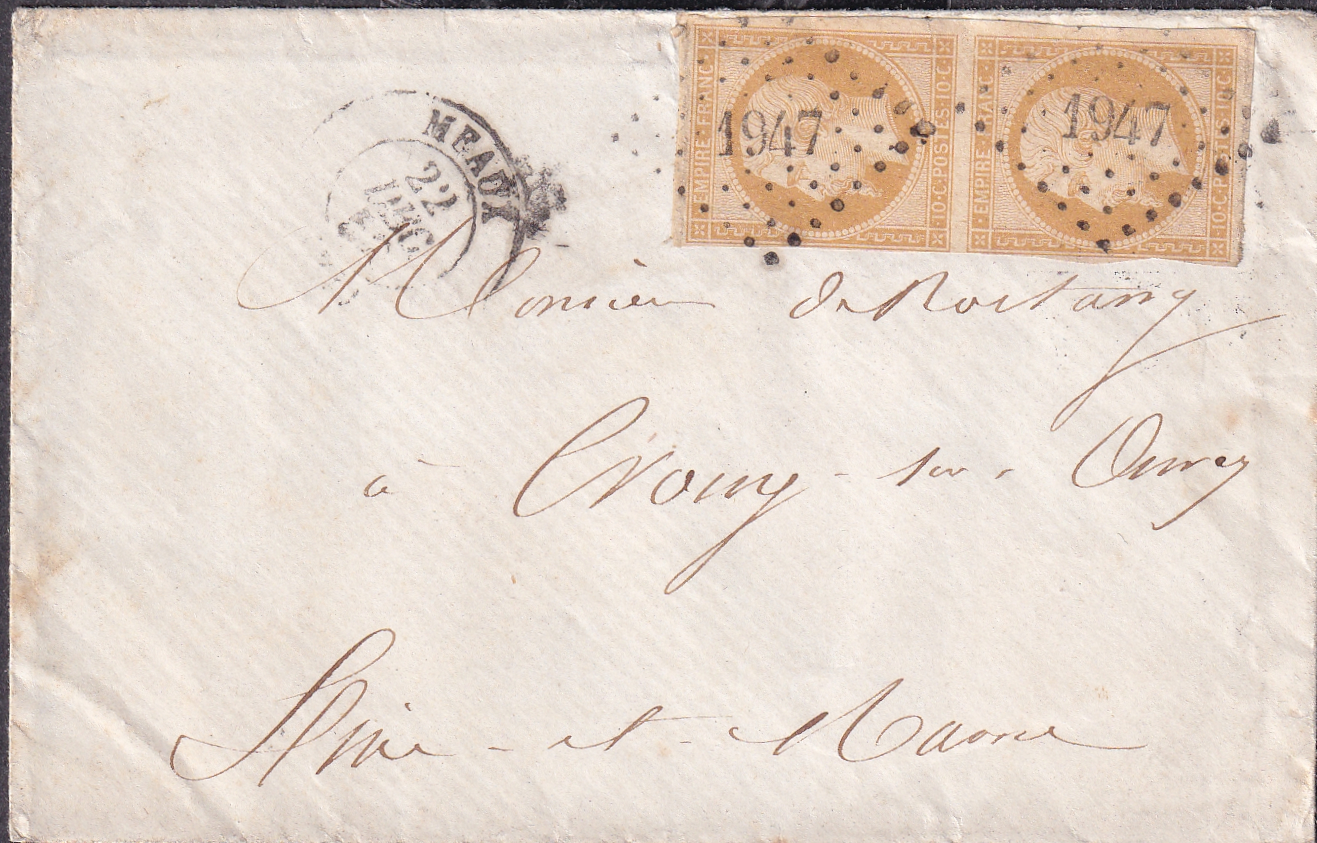 EMPIRE·FRANC·
10·C·POSTES·10·C·
1947
EMPIRE·FRANC·
10·C·POSTES·10·C·
1947
MEAUX
22
DEC
Monsieur de Rostang
à Crouy-sur-Ourcq
Seine-et-Marne